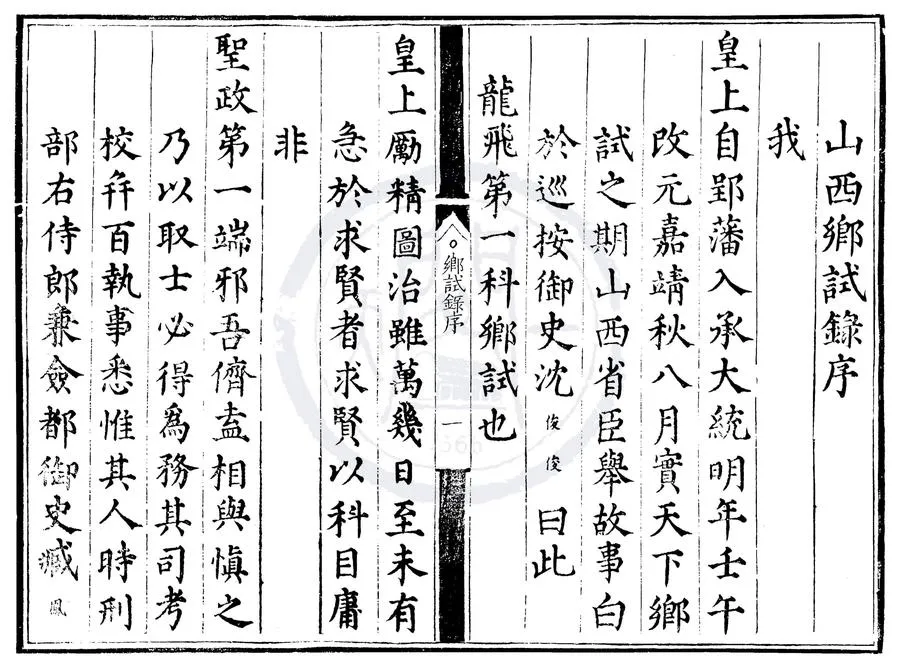 山西鄉試錄序
我
皇上自郢藩入承大統明年壬午
改元嘉靖秋八月實天下鄉
試之期山西省臣舉故事白
於巡按御史沈俊俊曰此
龍飛第一科鄉試也
鄉試錄序 一
皇上勵精圖治雖萬幾日至未有
急於求賢者求賢以科目庸
非
聖政第一端邪吾儕盍相與慎之
乃以取士必得為務其司考
校幷百執事悉惟其人時刑
部右侍郎兼僉都御史臧鳳